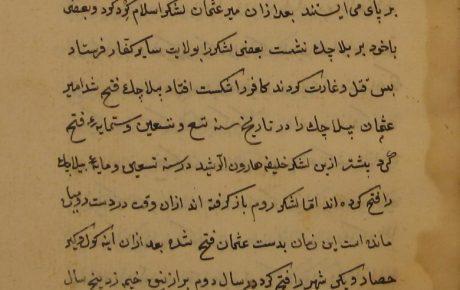 بر پای می ایستند بعد از ان میر عثمان لشکر اسلام کرد کرد و بعضی
با خود بر بلاجك نشست بعضی لشکر را بولایت سایر کفار فرستاد
بس قتل و غارت کردند کافر را شکست افتاد بیلاجك فتح شد امیر
عثمان بیلاجك را در تاریخ سنه تسع و تسعین و ستمایهٔ فتح
کرد بیشتر ازین لشکر خلیفه هارون الرشید در سنه تسعین و مایهٔ بیلاجك
را فتح کرده اند اما لشکر روم باز کرفته اند ازان وقت در دست روم
مانده است این زمان بدست عثمان فتح شده بعد ازان اینه کول
حصار و یکی شهر را فتح کرد در سال دوم بر ازنیق خیم زد پنج سال